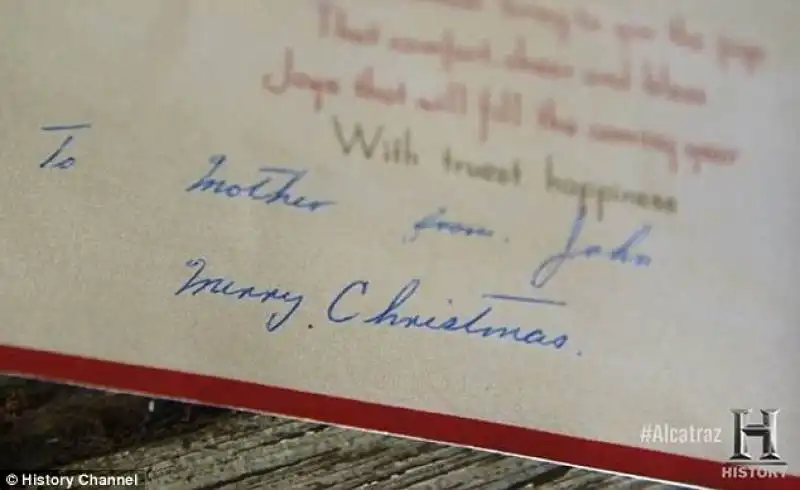 to you the
That comfort cheer and bless
Joys that will fill the coming year
With truest happiness
To Mother from. John
Merry. Christmas.
#Alcatraz
H
HISTORY
© History Channel